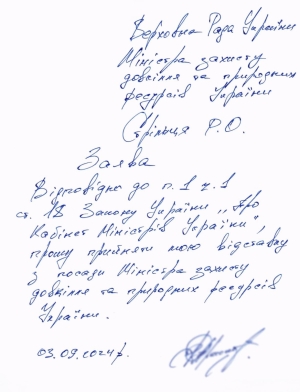 Верховна Рада України
Міністра захисту
довкілля та природних
ресурсів України
Стрільця Р.О.
Заява
Відповідно до п.1 ч.1
ст. 18 Закону України „Про
Кабінет Міністрів України",
прошу прийняти мою відставку
з посади Міністра захисту
довкілля та природних ресурсів
України.
03.09.2024р.